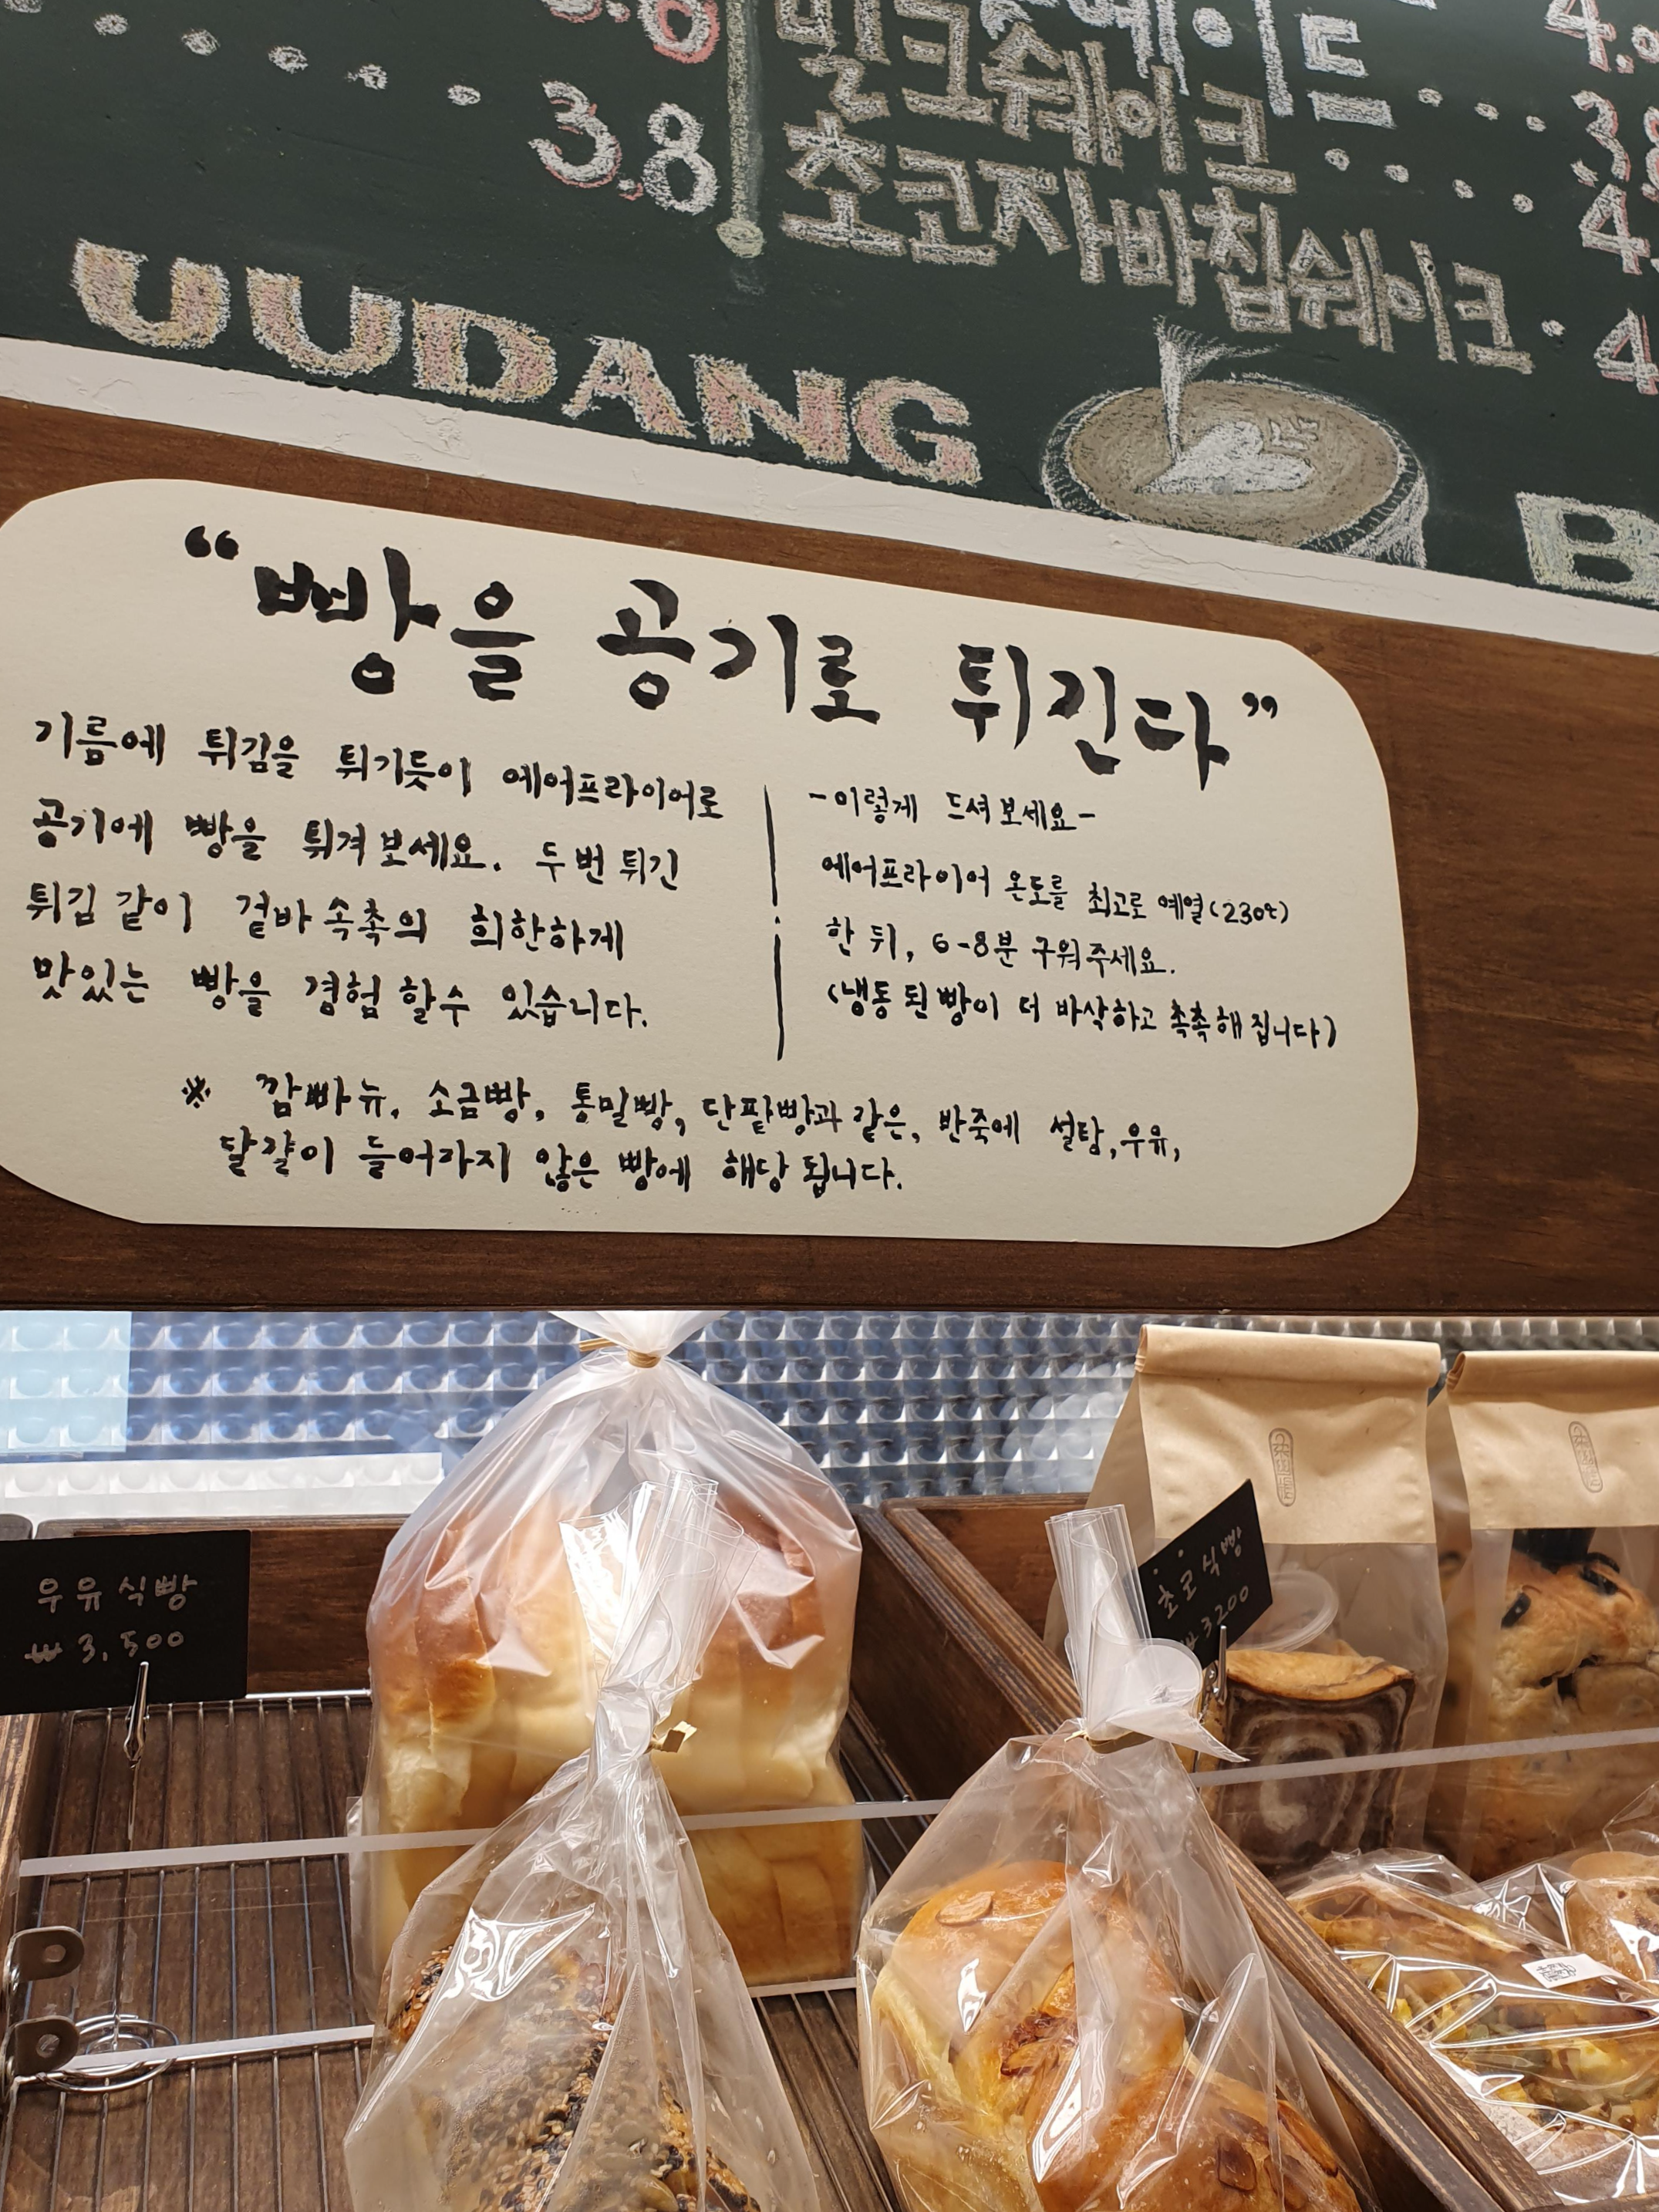 3.8
밀크쉐이크
초코자바칩쉐이크
UUDANG
B
“빵을 공기로 튀긴다”
기름에 튀김을 튀기듯이 에어프라이어로
공기에 빵을 튀겨보세요. 두번 튀긴
튀김 같이 겉바속촉의 희한하게
맛있는 빵을 경험 할수 있습니다.
-이렇게 드셔보세요-
에어프라이어 온도를 최고로 예열(230℃)
한 뒤, 6-8분 구워주세요.
(냉동된 빵이 더 바삭하고 촉촉해집니다)
※ 깜빠뉴, 소금빵, 통밀빵, 단팥빵과 같은, 반죽에 설탕, 우유,
달걀이 들어가지 않은 빵에 해당 됩니다.
우유식빵
₩3,500
초코식빵
₩3200